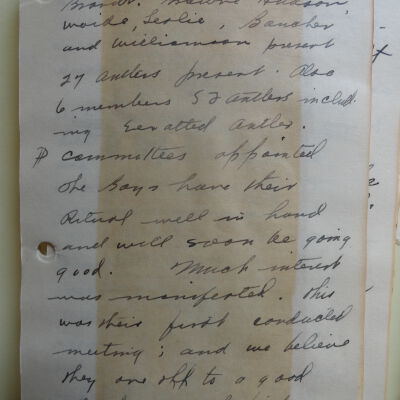 Wordie, Leslie, Boucher
and Williamson present
27 antlers present. Also
6 members 52 antlers includ-
ing Exalted Antler.
P committees appointed
The Boys have their
Ritual well in hand
and will soon be going
good. Much interest
was manifested. This
was their first conducted
meeting; and we believe
they are off to a good